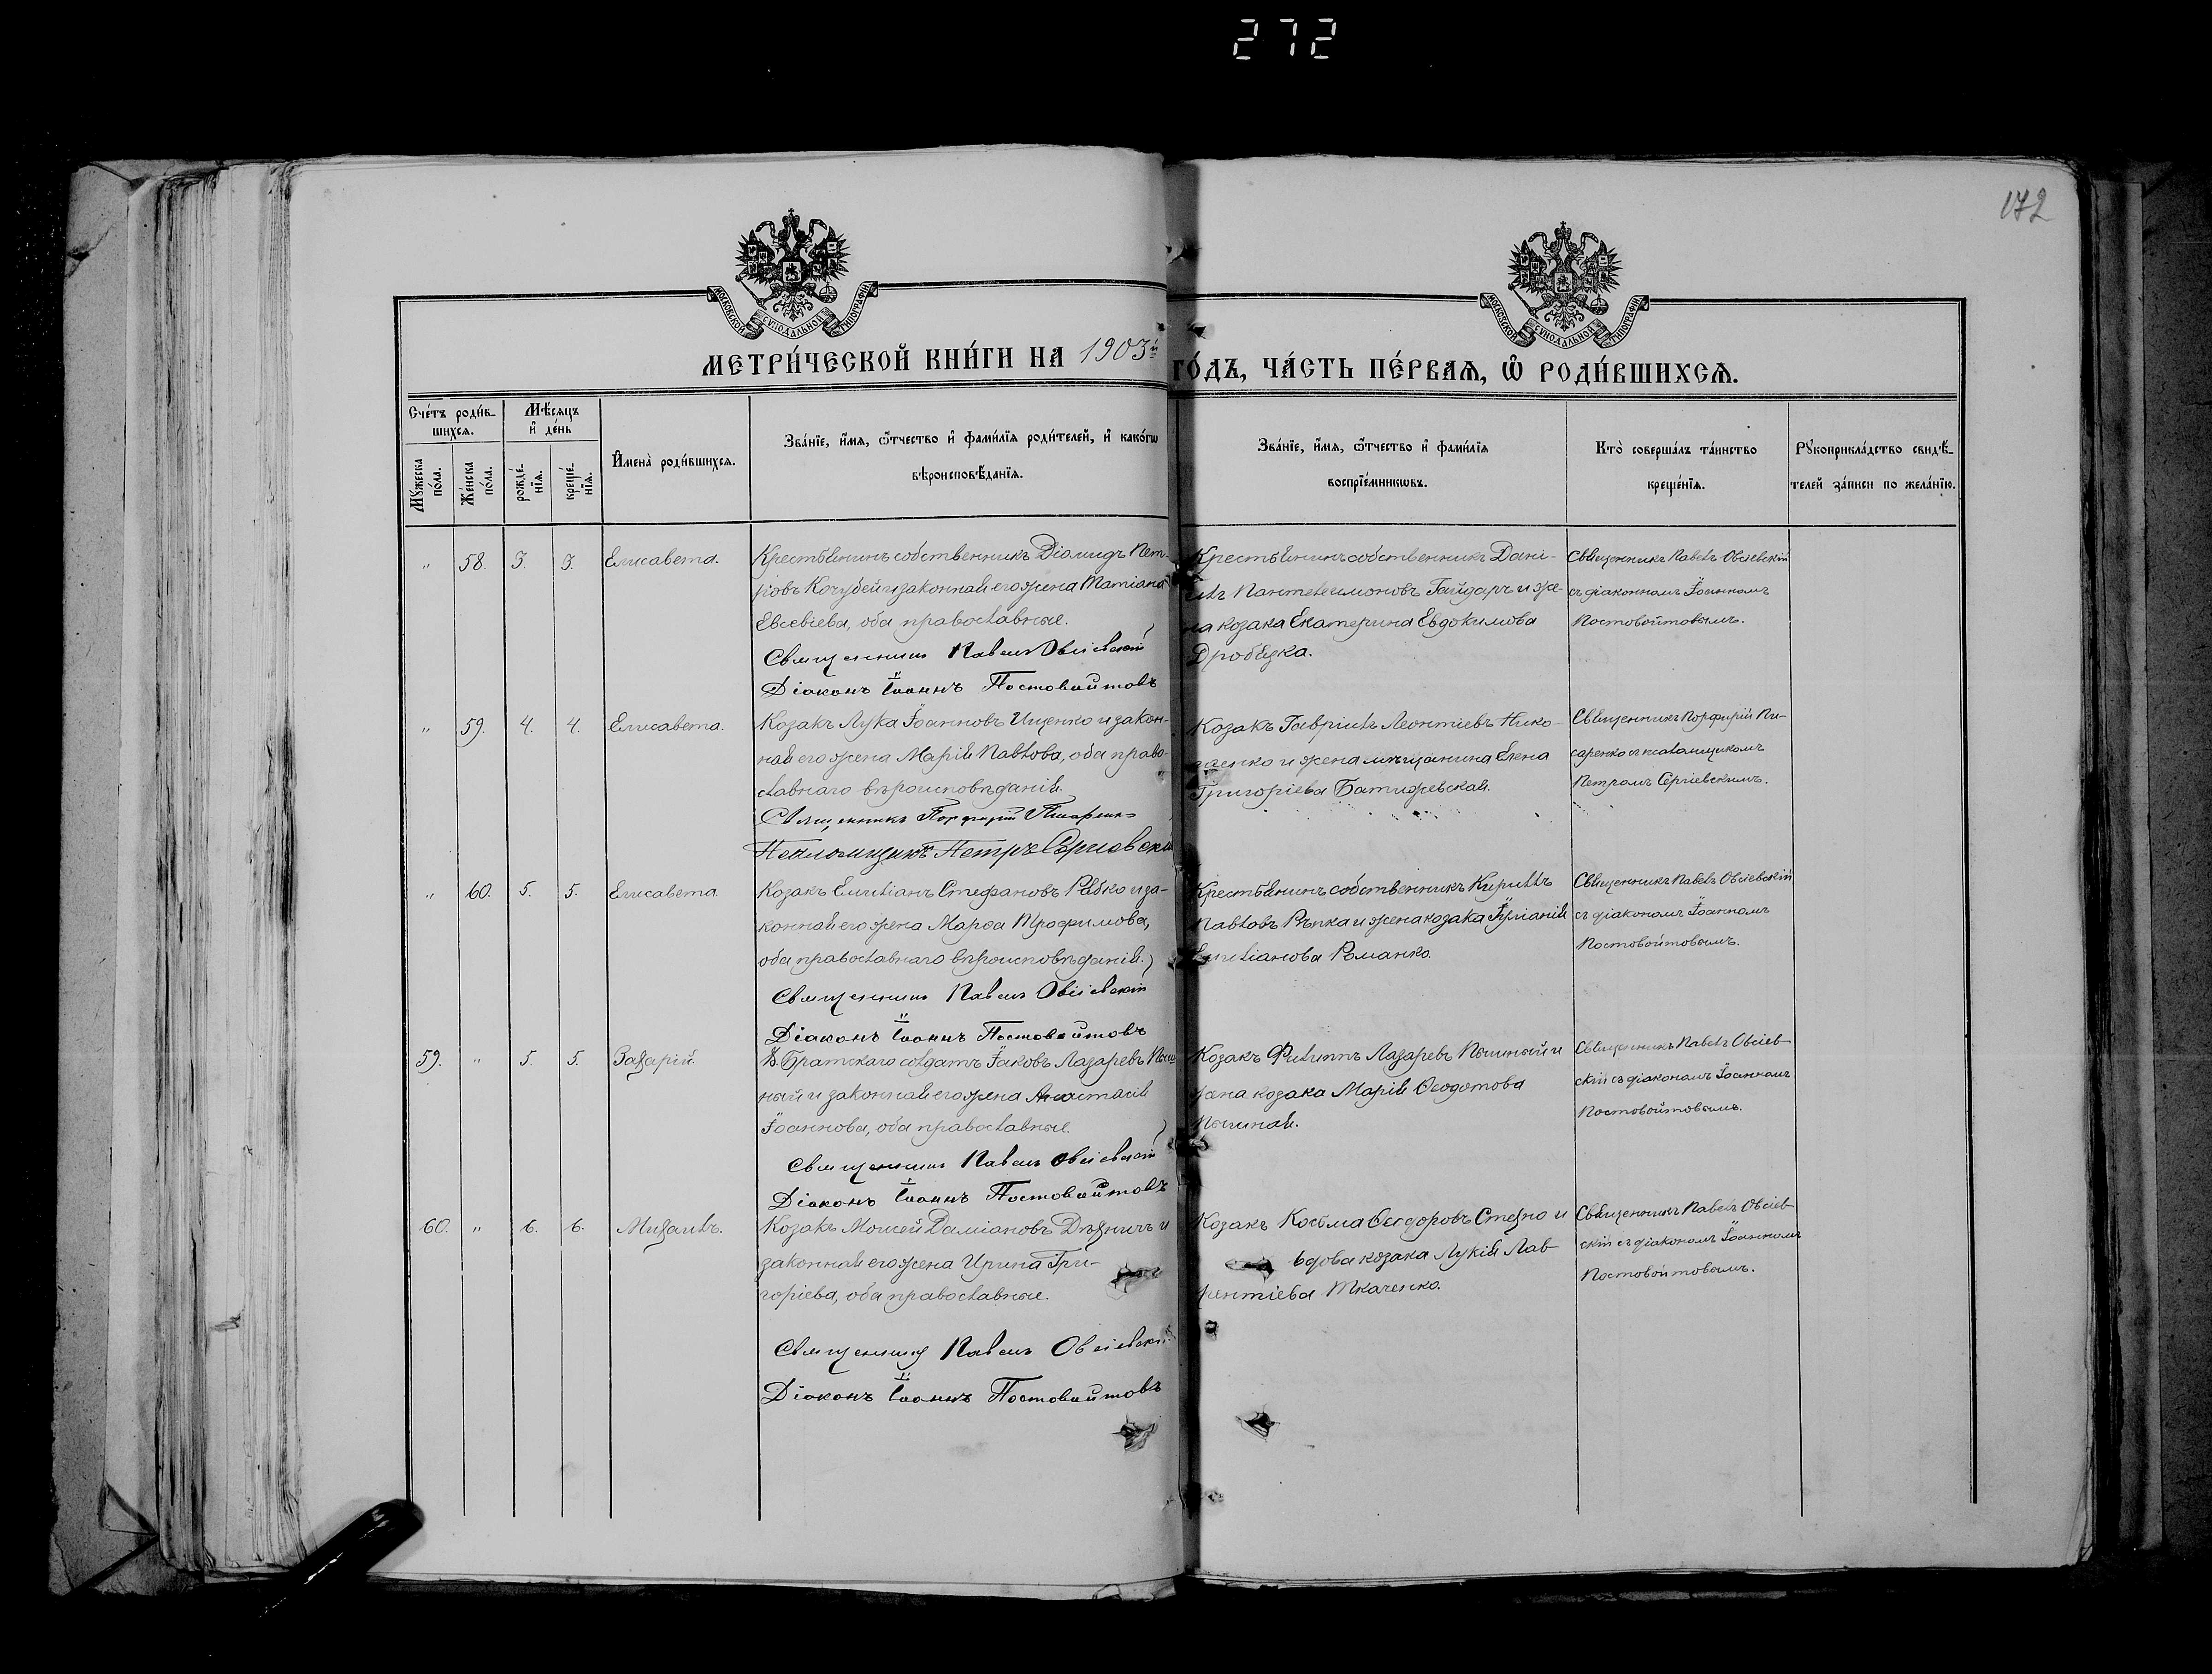 272
172
МОСКОВСКОЙ СѴНОДАЛЬНОЙ ТИПОГРАФІИ
МОСКОВСКОЙ СѴНОДАЛЬНОЙ ТИПОГРАФІИ
МЕТРИ́ЧЕСКОЙ КНИ́ГИ НА 1903й ГО́ДЪ, ЧА́СТЬ ПЕ́РВАѦ, Ѽ РОДИ́ВШИХСѦ.
Сче́тъ роди́в-
шихсѧ.
Мѣ́сѧцъ
и҆ де́нь
Мꙋ́жеска
по́ла.
Же́нска
по́ла.
рожде́-
нїѧ.
креще́-
нїѧ.
И҆мена̀ роди́вшихсѧ.
Зва́нїе, и҆́мѧ, ѻ҆́тчество и҆ фами́лїѧ роди́телей, и҆ како́гѡ
вѣроисповѣ́данїѧ.
Зва́нїе, и҆́мѧ, ѻ҆́тчество и҆ фами́лїѧ
воспрїе́мникѡвъ.
Кто̀ соверша́лъ та́инство
креще́нїѧ.
Рꙋкоприкла́дство свидѣ́-
телей за́писи по жела́нїю.
„ 58. 3. 3. Елисавета.
Крестьянинъ собственникъ Діомидъ Пет-
ровъ Кочубей и законная его жена Татіана
Евсевіева, оба православные.
Священникъ Павелъ Овсіевскій
Діаконъ Іоаннъ Постовойтовъ
Крестьянинъ собственникъ Дані-
илъ Пантелеимоновъ Гайдаръ и же-
на козака Екатерина Евдокимова
Дробязка.
Священникъ Павелъ Овсіевскій
съ діакономъ Іоанномъ
Постовойтовымъ.
„ 59. 4. 4. Елисавета.
Козакъ Лука Іоанновъ Ищенко и закон-
ная его жена Марія Павлова, оба право-
славнаго вѣроисповѣданія.
Священникъ Порфирій Писаренко
Псаломщикъ Петръ Сергіевскій
Козакъ Гавріилъ Леонтіевъ Нико-
лаенко и жена мѣщанина Елена
Григоріева Батижевская.
Священникъ Порфирій Пи-
саренко съ псаломщикомъ
Петромъ Сергіевскимъ.
„ 60. 5. 5. Елисавета
Козакъ Емиліанъ Стефановъ Рябко и за-
конная его жена Марѳа Трофимова,
оба православнаго вѣроисповѣданія.
Священникъ Павелъ Овсіевскій
Діаконъ Іоаннъ Постовойтовъ
Крестьянинъ собственникъ Кириллъ
Павловъ Рѣпка и жена козака Іуліанія
Емиліанова Романко.
Священникъ Павелъ Овсіевскій
съ діакономъ Іоанномъ
Постовойтовымъ.
59. „ 5. 5. Захарій.
Братскаго солдатъ Іаковъ Лазаревъ Пыш
ный и законная его жена Анастасія
Іоаннова, оба православные.
Священникъ Павелъ Овсіевскій
Діаконъ Іоаннъ Постовойтовъ
Козакъ Филиппъ Лазаревъ Пышный и
жена козака Марія Ѳеодотова
Пышная.
Священникъ Павелъ Овсіев-
скій съ діакономъ Іоанномъ
Постовойтовымъ.
60. „ 6. 6. Михаилъ.
Козакъ Моисей Даміановъ Дѣхничъ и
законная его жена Ирина Гри-
горіева, оба православные.
Священникъ Павелъ Овсіевскій
Діаконъ Іоаннъ Постовойтовъ
Козакъ Косьма Ѳеодоровъ Стехно и
вдова козака Лукія Лав-
рентіева Ткаченко.
Священникъ Павелъ Овсіев-
скій съ діакономъ Іоанномъ
Постовойтовымъ.